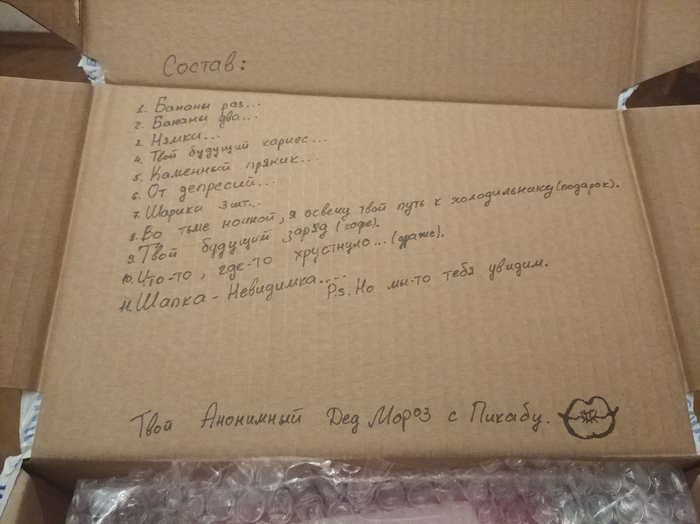 Состав:
1. Бананы раз...
2. Бананы два...
3. Нямки...
4. Твой будущий кариес...
5. Каменный пряник...
6. От депрессий...
7. Шарики 3 шт...
8. Во тьме ночной, я освещу твой путь к холодильнику (подарок).
9. Твой будущий заряд (кофе).
10. Что-то, где-то хрустнуло... (драже).
11. Шапка-Невидимка....
P.s. Но мы-то тебя увидим.
Твой Анонимный Дед Мороз с Пикабу.